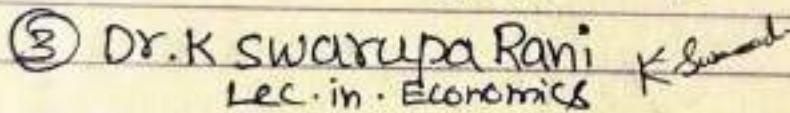 ③ Dr. K Swarupa Rani
Lec. in. Economics